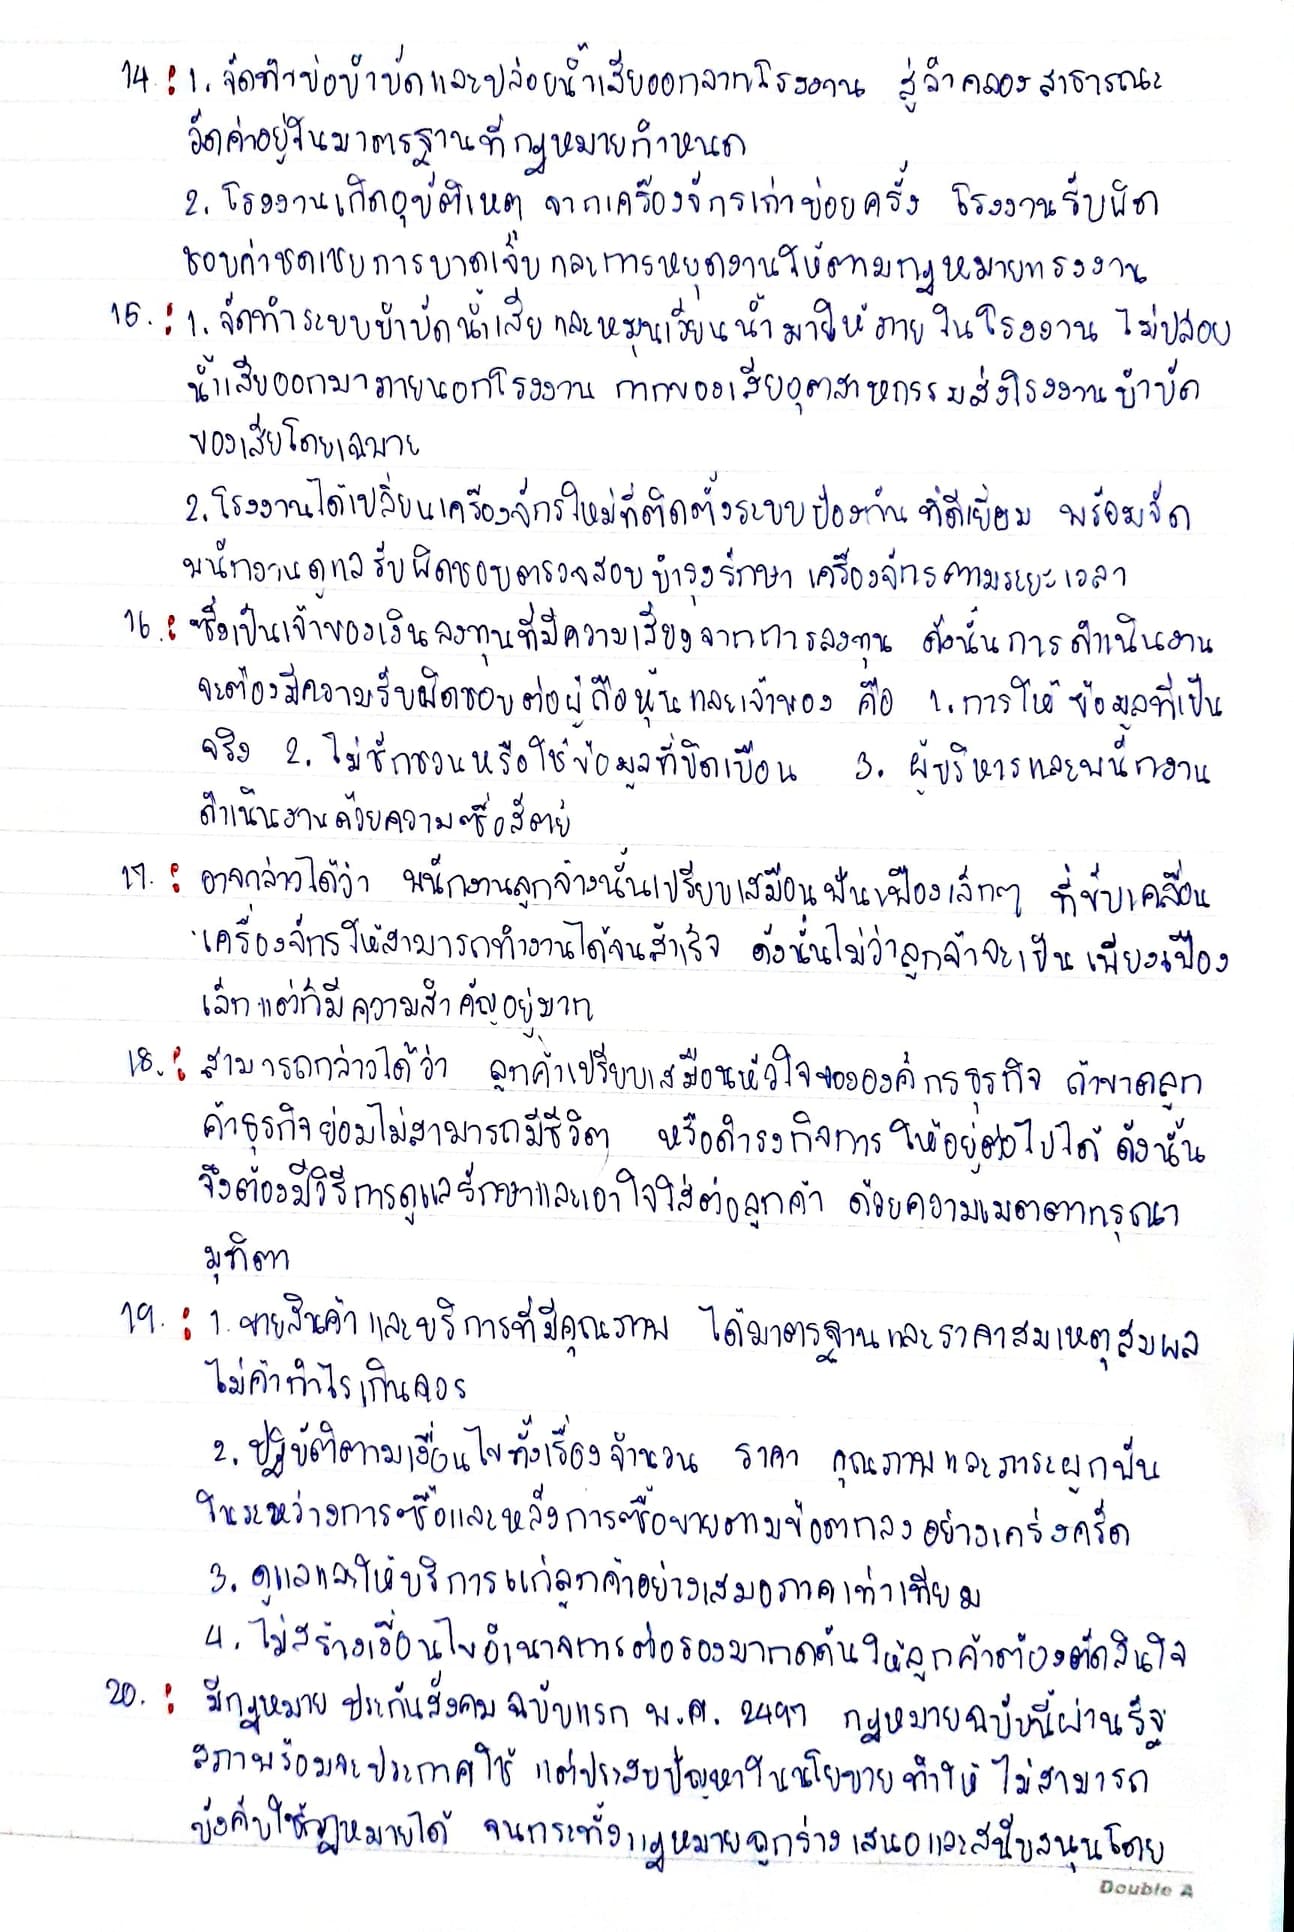 14. : 1. จัดทำบ่อบำบัดและปล่อยน้ำเสียออกจากโรงงาน สู่ลำคลองสาธารณะ
วัดค่าอยู่ในมาตรฐานที่กฎหมายกำหนด
2. โรงงานเกิดอุบัติเหตุ จากเครื่องจักรเก่าบ่อยครั้ง โรงงานรับผิด
ชอบค่าชดเชยการบาดเจ็บและการหยุดงานให้ตามกฎหมายแรงงาน
15. : 1. จัดทำระบบบำบัดน้ำเสีย และหมุนเวียนน้ำมาใช้ภายในโรงงาน ไม่ปล่อย
น้ำเสียออกมาภายนอกโรงงาน กากของเสียอุตสาหกรรมส่งโรงงานบำบัด
ของเสียโดยเฉพาะ
2. โรงงานได้เปลี่ยนเครื่องจักรใหม่ที่ติดตั้งระบบป้องกัน ที่ดีเยี่ยม พร้อมจัด
พนักงานดูแลรับผิดชอบตรวจสอบบำรุงรักษา เครื่องจักรตามระยะเวลา
16. : ซึ่งเป็นเจ้าของเงินลงทุนที่มีความเสี่ยงจากการลงทุน ดังนั้นการดำเนินงาน
จะต้องมีความรับผิดชอบต่อผู้ถือหุ้นและเจ้าของ คือ 1. การให้ ข้อมูลที่เป็น
จริง 2. ไม่ชักชวนหรือใช้ข้อมูลที่บิดเบือน 3. ผู้บริหารและพนักงาน
ดำเนินงานด้วยความซื่อสัตย์
17. : อาจกล่าวได้ว่า พนักงานลูกจ้างนั้นเปรียบเสมือนฟันเฟืองเล็กๆ ที่ขับเคลื่อน
เครื่องจักรให้สามารถทำงานได้จนสำเร็จ ดังนั้นไม่ว่าลูกจ้าจะเป็น เพียงเฟือง
เล็กแต่ว่ก็มีความสำคัญอยู่มาก
18. : สามารถกล่าวได้ว่า ลูกค้าเปรียบเสมือนหัวใจขององค์กรธุรกิจ ถ้าขาดลูก
ค้าธุรกิจย่อมไม่สามารถมีชีวิต หรือดำรงกิจการ ให้อยู่ต่อไปได้ ดังนั้น
จึงต้องมีวิธีการดูแลรักษาและเอาใจใส่ต่อลูกค้า ด้วยความเมตตากรุณา
มุทิตา
19. : 1. ขายสินค้า และบริการที่มีคุณภาพ ได้มาตรฐานและราคาสมเหตุสมผล
ไม่ค้ากำไรเกินควร
2. ปฏิบัติตามเงื่อนไขทั้งเรื่องจำนวน ราคา คุณภาพและภาระผูกพัน
ในระหว่างการซื้อและหลังการซื้อขายตามข้อตกลงอย่างเคร่งครัด
3. ดูแลและให้บริการแก่ลูกค้าอย่างเสมอภาคเท่าเทียม
4. ไม่สร้างเงื่อนไขอำนาจการต่อรองมากดดันให้ลูกค้าต้องตัดสินใจ
20. : มีกฎหมาย ประกันสังคม ฉบับแรก พ.ศ. 2497 กฎหมายฉบับนี้ผ่านรัฐ
สภาพร้อมจะประกาศใช้ แต่ประสบปัญหาในนโยบาย ทำให้ ไม่สามารถ
บังคับใช้กฎหมายได้ จนกระทั่งกฎหมายถูกร่าง เสนอและสนับสนุนโดย
Double A